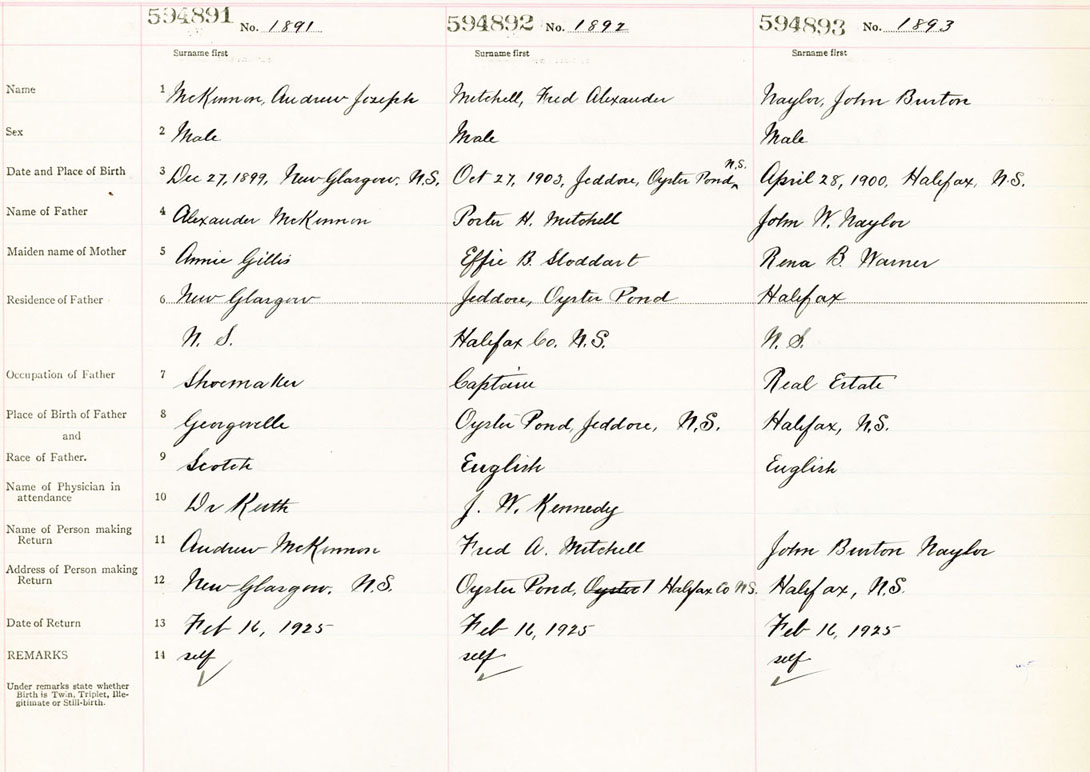 594891 No. 1891 594892 No. 1892 594893 No. 1893
Surname first Surname first Surname first
Name 1 McKinnon, Andrew Joseph Mitchell, Fred Alexander Naylor, John Burton
Sex 2 Male Male Male
N.S.
Date and Place of Birth 3 Dec 27, 1899, New Glasgow, N.S. Oct 27, 1903, Jeddore, Oyster Pond, April 28, 1900, Halifax, N.S.
Name of Father 4 Alexander McKinnon Porter H. Mitchell John W. Naylor
Maiden name of Mother 5 Annie Gillis Effie B. Stoddart Rena B. Warner
Residence of Father 6 New Glasgow Jeddore, Oyster Pond Halifax
N. S. Halifax Co. N.S. N. S.
Occupation of Father 7 Shoemaker Captain Real Estate
Place of Birth of Father 8 Georgeville Oyster Pond, Jeddore, N.S. Halifax, N.S.
and
Race of Father. 9 Scotch English English
Name of Physician in
attendance 10 Dr Keith J. W. Kennedy
Name of Person making
Return 11 Andrew McKinnon Fred A. Mitchell John Burton Naylor
Address of Person making
Return 12 New Glasgow, N.S. Oyster Pond, Oyster Halifax Co N.S. Halifax, N.S.
Date of Return 13 Feb 16, 1925 Feb 16, 1925 Feb 16, 1925
REMARKS 14 self self self
Under remarks state whether
Birth is Twin, Triplet, Ille-
gitimate or Still-birth.